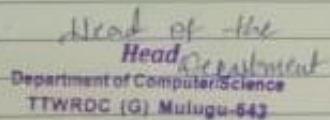 Head of the
Head Department
Department of Computer Science
TTWRDC (G) Mulugu-543